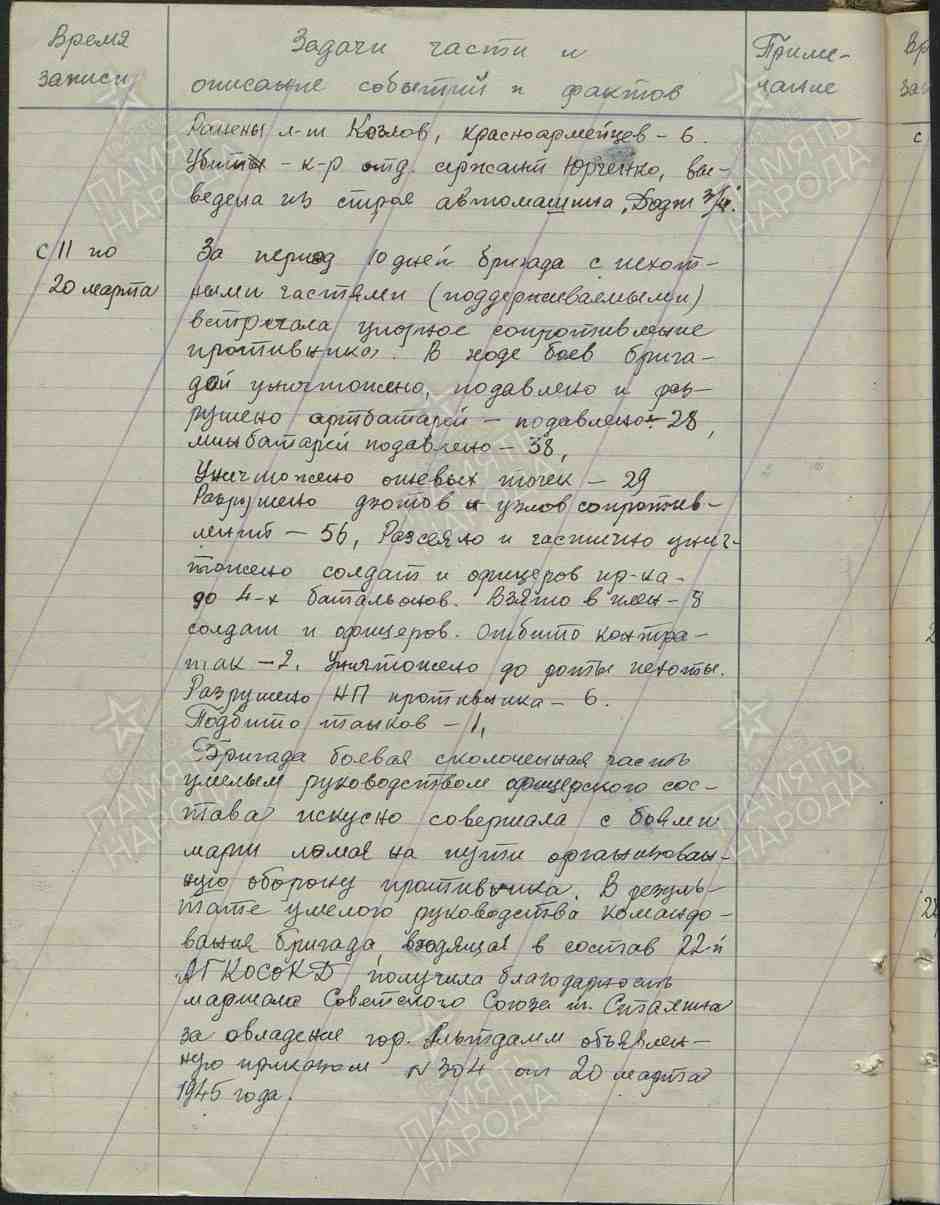 Время записи
Задачи части и описание событий и фактов
Примечание
Ранены л-т Козлов, красноармейцев – 6.
Убиты – к-р отд. сержант Юрченко, вы-
ведена из строя автомашина „Додж 3/4".
с 11 по
20 марта
За период 10 дней бригада с пехот-
ными частями (поддерживаемыми)
встречала упорное сопротивление
противника. В ходе боев брига-
дой уничтожено, подавлено и раз-
рушено артбатарей – подавлено – 28,
минбатарей подавлено – 38,
Уничтожено огневых точек – 29
Разрушено дзотов и узлов сопротив-
ления – 56, Разсеяно и частично унич-
тожено солдат и офицеров пр-ка –
до 4-х батальонов. Взято в плен – 8
солдат и офицеров. Отбито контра-
так – 2. Уничтожено до роты пехоты.
Разрушено НП противника – 6.
Подбито танков – 1,
Бригада боевая сколоченная часть
умелым руководством офицерского сос-
тава искусно совершала с боями
марш ломая на пути организован-
ную оборону противника. В резуль-
тате умелого руководства командо-
вания бригада, входящая в состав 22-й
АДП получила благодарность
маршала Советского Союза т. Сталина
за овладение гор. Альтдамм объявлен-
ную приказом №304 от 20 марта
1945 года.
ПАМЯТЬ НАРОДА